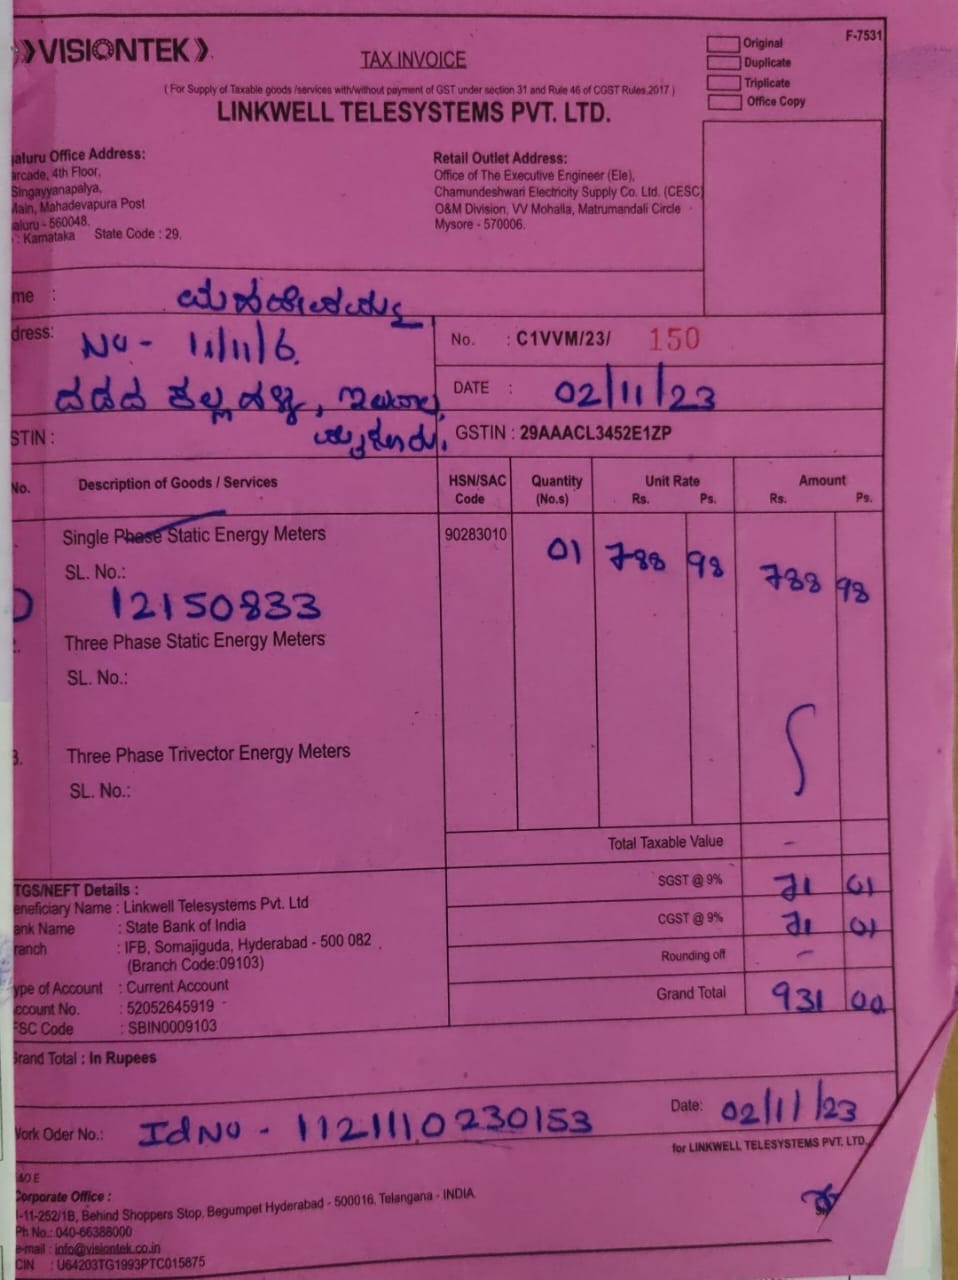 VISIONTEK
TAX INVOICE
Original
Duplicate
Triplicate
Office Copy
F-7531
( For Supply of Taxable goods /services with/without payment of GST under section 31 and Rule 46 of CGST Rules,2017 )
LINKWELL TELESYSTEMS PVT. LTD.
aluru Office Address:
arcade, 4th Floor,
Singayyanapalya,
Main, Mahadevapura Post
aluru - 560048.
: Karnataka State Code : 29.
Retail Outlet Address:
Office of The Executive Engineer (Ele),
Chamundeshwari Electricity Supply Co. Ltd. (CESC)
O&M Division, VV Mohalla, Matrumandali Circle
Mysore - 570006.
me :
dress:
No - 11/11/6.
No. : C1VVM/23/ 150
DATE : 02/11/23
STIN :
GSTIN : 29AAACL3452E1ZP
No. Description of Goods / Services HSN/SAC Code Quantity (No.s) Unit Rate Rs. Ps. Amount Rs. Ps.
Single Phase Static Energy Meters 90283010 01 788 98 788 98
SL. No.:
12150833
Three Phase Static Energy Meters
SL. No.:
3. Three Phase Trivector Energy Meters
SL. No.:
Total Taxable Value -
SGST @ 9% 71 01
CGST @ 9% 71 01
Rounding off -
Grand Total 931 00
TGS/NEFT Details :
eneficiary Name : Linkwell Telesystems Pvt. Ltd
ank Name : State Bank of India
ranch : IFB, Somajiguda, Hyderabad - 500 082
(Branch Code:09103)
ype of Account : Current Account
ccount No. : 52052645919
FSC Code : SBIN0009103
Grand Total : In Rupees
Work Oder No.: Id No - 1121110230153
Date: 02/11/23
for LINKWELL TELESYSTEMS PVT. LTD.
Corporate Office :
-11-252/1B, Behind Shoppers Stop, Begumpet Hyderabad - 500016, Telangana - INDIA
Ph No.: 040-66388000
e-mail : info@visiontek.co.in
CIN : U64203TG1993PTC015875